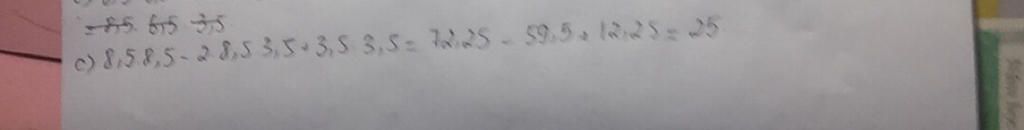 = 8,5. 6,5 3,5
c) 8,5.8,5 - 2.8,5 3,5 + 3,5.3,5 = 72,25 - 59,5 + 12,25 = 25